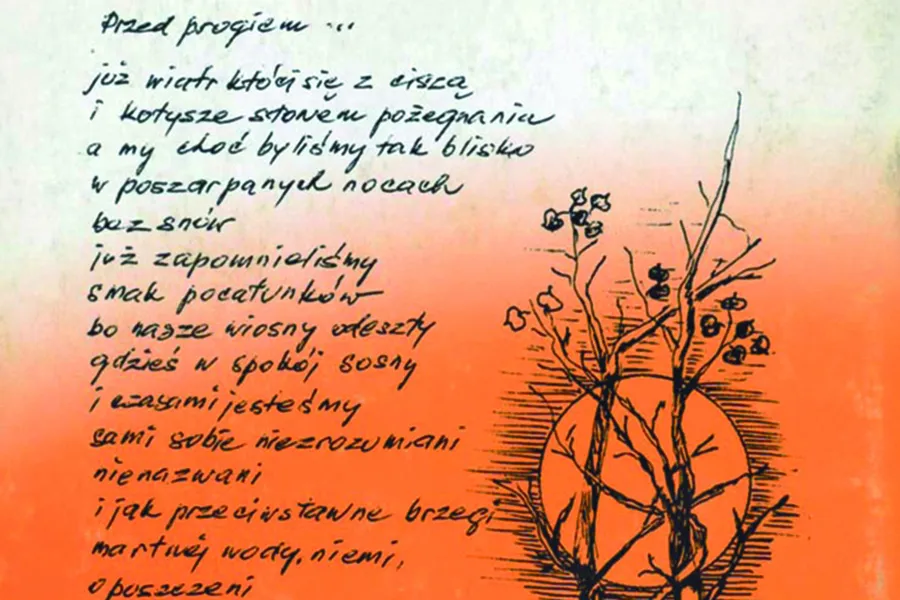 Przed progiem ...
już wiatr kłóci się z ciszą
i kołysze słowem pożegnania
a my choć byliśmy tak blisko
w poszarpanych nocach
bez snów
już zapomnieliśmy
smak pocałunków
bo nasze wiosny odeszły
gdzieś w spokój sosny
i czasami jesteśmy
sami sobie niezrozumiani
nienazwani
i jak przeciwstawne brzegi
martwej wody, niemi,
opuszczeni